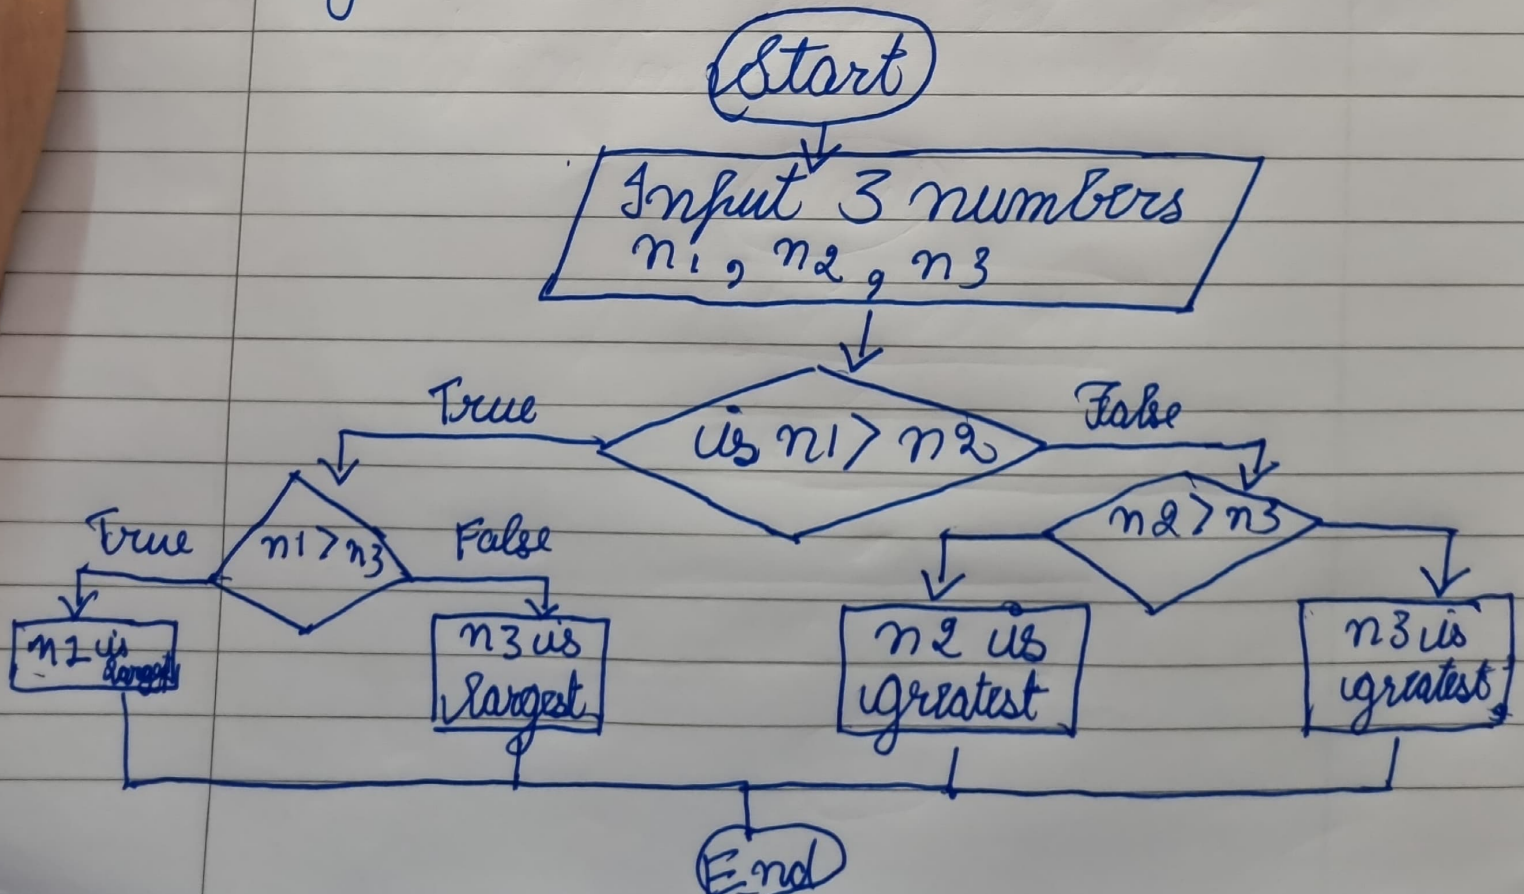 Start
Input 3 numbers
n1, n2, n3
True
is n1 > n2
False
True
n1 > n3
False
n2 > n3
n1 is
largest
n3 is
largest
n2 is
greatest
n3 is
greatest
End